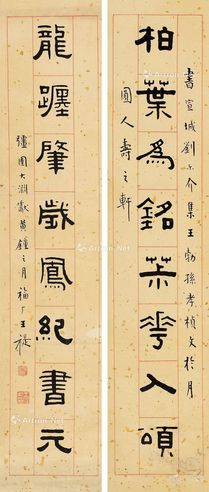 書宣城劉介集王勃孫孝楨文於月
柏葉爲銘茮華入頌
圓人壽之軒
龍躔肇歲鳳紀書元
彊圉大淵獻黃鐘之月福厂王禔